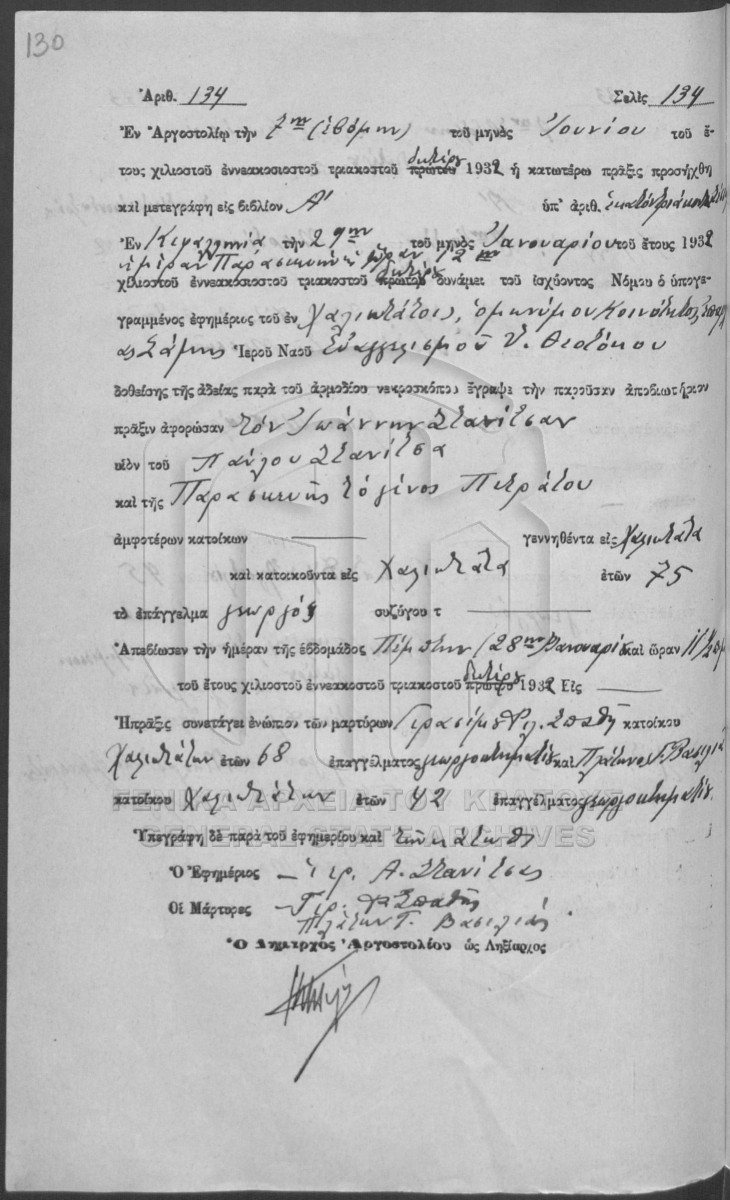 130
Ἀριθ. 134 Σελὶς 134
Ἐν Ἀργοστολίῳ τὴν 7ην (ἑβδόμην) τοῦ μηνὸς Ἰουνίου τοῦ ἔ-
τους χιλιοστοῦ ἐννεακοσιοστοῦ τριακοστοῦ πρώτου δευτέρου 1932 ἡ κατωτέρω πρᾶξις προσήχθη
καὶ μετεγράφη εἰς βιβλίον Α' ὑπ' ἀριθ. ἑκατὸν
Ἐν Κεφαλληνίᾳ τὴν 29ην τοῦ μηνὸς Ἰανουαρίου τοῦ ἔτους 1932
ἡμέραν Παρασκευὴν ὥραν 12 μ
χιλιοστοῦ ἐννεακοσιοστοῦ τριακοστοῦ πρώτου δευτέρου δυνάμει τοῦ ἰσχύοντος Νόμου ὁ ὑπογε-
γραμμένος ἐφημέριος τοῦ ἐν Χαλικτάτοις, ὁμωνύμου Κοινότητος
Σάμης Ἱεροῦ Ναοῦ Εὐαγγελισμοῦ Ὑ. Θεοτόκου
δοθείσης τῆς ἀδείας παρὰ τοῦ ἁρμοδίου νεκροσκόπου ἔγραψε τὴν παροῦσαν ἀποβιωτήριον
πρᾶξιν ἀφορῶσαν τὸν Ἰωάννην Στανίτσαν
υἱὸν τοῦ Παύλου Στανίτσα
καὶ τῆς Παρασκευῆς τὸ γένος Πετράτου
ἀμφοτέρων κατοίκων γεννηθέντα εἰς Χαλικτάτα
καὶ κατοικοῦντα εἰς Χαλικτάτα ἐτῶν 75
τὸ ἐπάγγελμα γεωργὸς συζύγου τ
Ἀπεβίωσεν τὴν ἡμέραν τῆς ἑβδομάδος Πέμπτην (28ην Ἰανουαρίου καὶ ὥραν 11 1/2 πμ
τοῦ ἔτους χιλιοστοῦ ἐννεακοστοῦ τριακοστοῦ πρώτου δευτέρου 1932 Εἰς
Ἡ πρᾶξις συνετάγει ἐνώπιον τῶν μαρτύρων Γερασίμου Φλ. Σπαθῆ κατοίκου
Χαλικτάτων ἐτῶν 68 ἐπαγγέλματος γεωργοκτηματίου καὶ Πλάτωνος Γ. Βασιλιᾶ
κατοίκου Χαλικτάτων ἐτῶν 42 ἐπαγγέλματος γεωργοκτηματίου
Ὑπεγράφη δὲ παρὰ τοῦ ἐφημερίου καὶ τῶν κάτωθι
Ὁ Ἐφημέριος Ἱερ. Α. Στανίτσας
Οἱ Μάρτυρες Γερ. Φλ Σπαθῆς
Πλάτων Γ. Βασιλιᾶς.
Ὁ Δήμαρχος Ἀργοστολίου ὡς Ληξίαρχος
ΓΕΝΙΚΑ ΑΡΧΕΙΑ ΤΟΥ ΚΡΑΤΟΥΣ
GENERAL STATE ARCHIVES